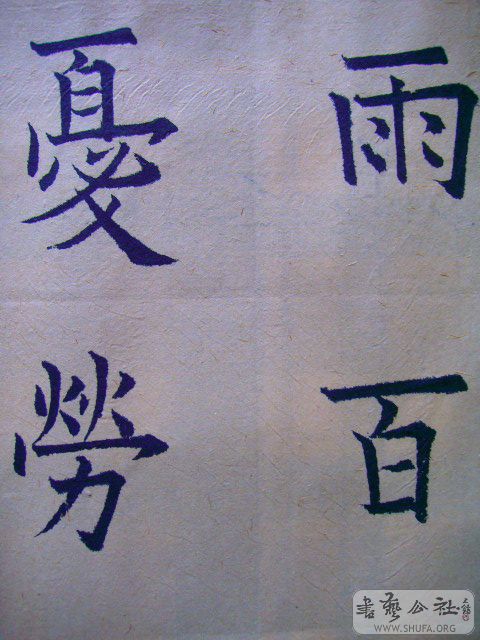 雨百
憂勞
書藝公社
WWW.SHUFA.ORG